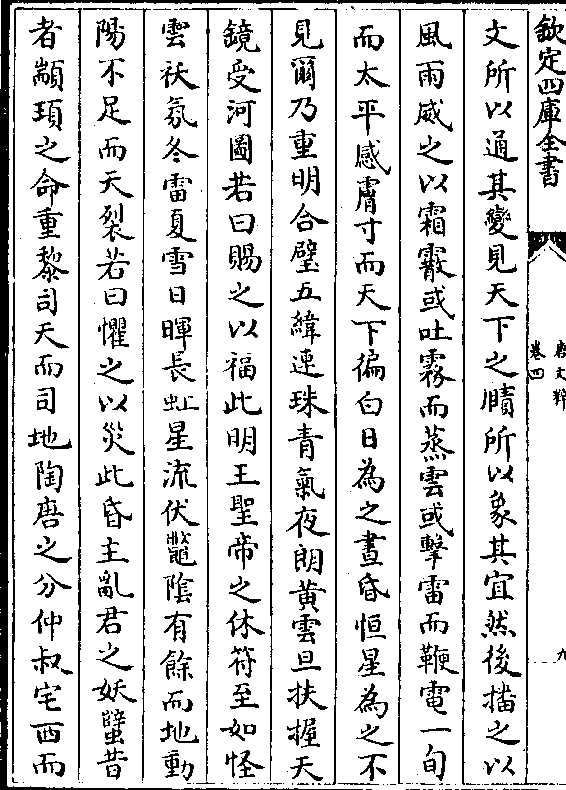 欽定四庫全書
唐文粹
卷四
九
文所以通其變見天下之賾所以象其宜然後播之以
風雨威之以霜霰或吐霧而蒸雲或擊雷而鞭電一旬
而太平感膚寸而天下徧白日為之晝昏恒星為之不
見爾乃重明合璧五緯連珠青氣夜朗黄雲旦扶握天
鏡受河圖若曰賜之以福此明王聖帝之休符至如怪
雲祅氛冬雷夏雪日暉長虹星流伏鼈陰有餘而地動
陽不足而天裂若曰懼之以災此昏主亂君之妖孽昔
者顓頊之命重黎司天而司地陶唐之分仲叔宅西而